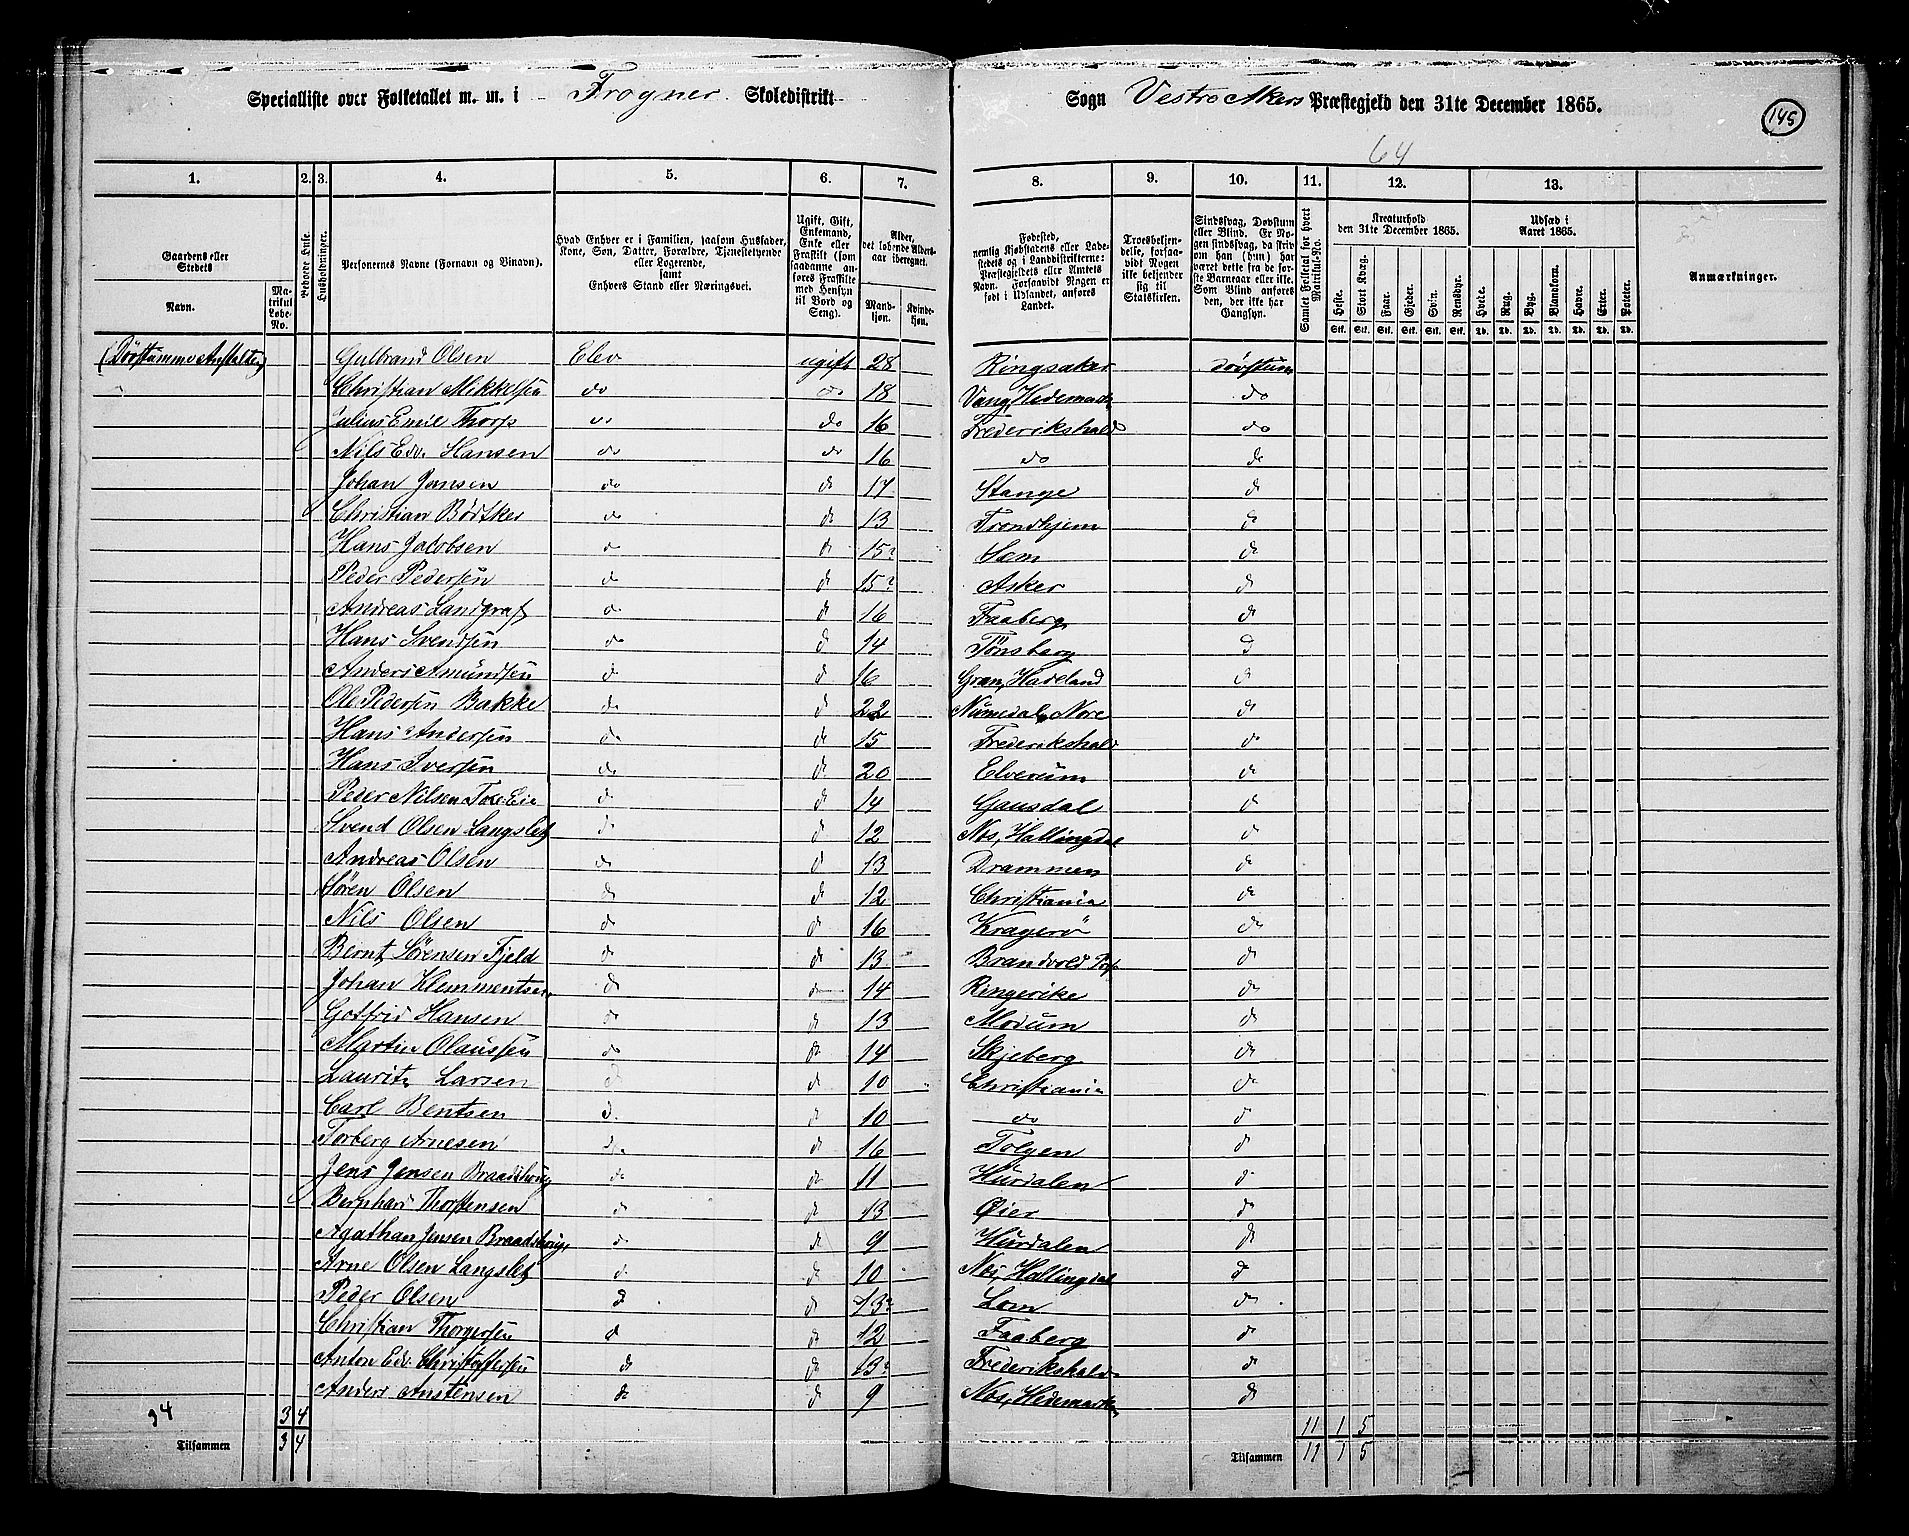 Specialliste over Folketallet m. m. i Frogner Skoledistrikt Sogn Vestre Akers Præstegjeld den 31te December 1865.
145
64
1. 2. 3. 4. 5. 6. 7. 8. 9. 10. 11. 12. 13.
Gaardens eller Stedets
Navn.
Matrikul Løbe-No.
Beboede Huse.
Husholdninger.
Personernes Navne (Fornavn og Binavn).
Hvad Enhver er i Familien, saasom Husfader, Kone, Søn, Datter, Forældre, Tjenestetyende eller Logerende, samt Enhvers Stand eller Næringsvei.
Ugift, Gift, Enkemand, Enke eller Fraskilt (som saadanne anføres Fraskilte med Hensyn til Bord og Seng).
Alder, det løbende Alders-aar iberegnet.
Mandkjøn.
Kvindekjøn.
Fødested, nemlig Kjøbstadens eller Ladestedets og i Landdistrikterne: Præstegjeldets eller Amtets Navn. Forsaavidt Nogen er født i Udlandet, anføres Landet.
Troesbekjendelse, forsaavidt Nogen ikke bekjender sig til Statskirken.
Sindssvag, Døvstum eller Blind. Er Nogen sindssvag, da skriv om han (hun) har været dette fra de første Barneaar eller ikke. Som Blind anføres den, der ikke har Gangsyn.
Samlet Folketal for hvert Matrikul-No.
Kreaturhold den 31te December 1865.
Heste. Stort Kvæg. Faar. Gjeder. Svin. Rensdyr.
Stk. Stk. Stk. Stk. Stk. Stk.
Udsæd i Aaret 1865.
Hvete. Rug. Byg. Blandkorn. Havre. Erter. Poteter.
Td. Td. Td. Td. Td. Td. Td.
Anmærkninger.
(Døvstumme Anstalten) Gulbrand Olsen Elev ugift 28 Ringsaker døvstum
Christian Mikkelsen do do 18 Vang, Hedemark do
Julius Emil Thorp do do 16 Frederikshald do
Nils Edv. Hansen do do 16 do do
Johan Jansen do do 17 Stange do
Christian Bødtker do do 13 Trondhjem do
Hans Jacobsen do do 15 Sem do
Peder Pedersen do do 15 Asker do
Andreas Landgraf do do 16 Faaberg do
Hans Svendsen do do 14 Tönsberg do
Anders Amundsen do do 16 Gran, Hadeland do
Ole Pedersen Bakke do do 22 Numedal, Nore do
Hans Andersen do do 15 Frederikshald do
Hans Iversen do do 20 Elverum do
Peder Nilsen do do 14 Gausdal do
Svend Olsen Langslet do do 12 Nes, Hallingdal do
Andreas Olsen do do 13 Drammen do
Sören Olsen do do 12 Christiania do
Nils Olsen do do 16 Kragerö do
Bernt Sörensen Fjeld do do 13 Brandvold do
Johan Klemmentsen do do 14 Ringerike do
Gotfrid Hansen do do 13 Modum do
Martin Olaussen do do 14 Skjeberg do
Lauritz Larsen do do 10 Christiania do
Carl Bentsen do do 10 do do
Torberg Arnesen do do 16 Tolgen do
Jens Jensen Braadthoug do do 11 Hurdalen do
Bernhard Thorstensen do do 13 Øier do
Agathan Jensen Braadthoug do do 9 Hurdalen do
Arne Olsen Langslet do do 10 Nes, Hallingdal do
Peder Olsen do do 13 Lom do
Christian Thorgersen do do 12 Faaberg do
Anton Edv. Christoffersen do do 13 Frederikshald do
Anders Anstensen do do 9 Nes, Hedemarken do
34 3 4 11 1 5
Tilsammen 3 4 Tilsammen 11 1 5